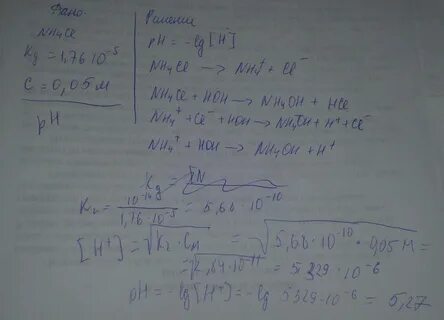 Дано:
NH4Cl
Kд = 1,76·10^-5
C = 0,05 М
pH
Решение
pH = -lg[H+]
NH4Cl → NH4+ + Cl-
NH4Cl + HOH → NH4OH + HCl
NH4+ + Cl- + HOH → NH4OH + H+ + Cl-
NH4+ + HOH → NH4OH + H+
Kг = 10^-14 / 1,76·10^-5 = 5,68·10^-10
[H+] = √Kг·Cм = √5,68·10^-10·0,05 М =
= √2,84·10^-11 = 5,329·10^-6
pH = -lg[H+] = -lg 5,329·10^-6 = 5,27